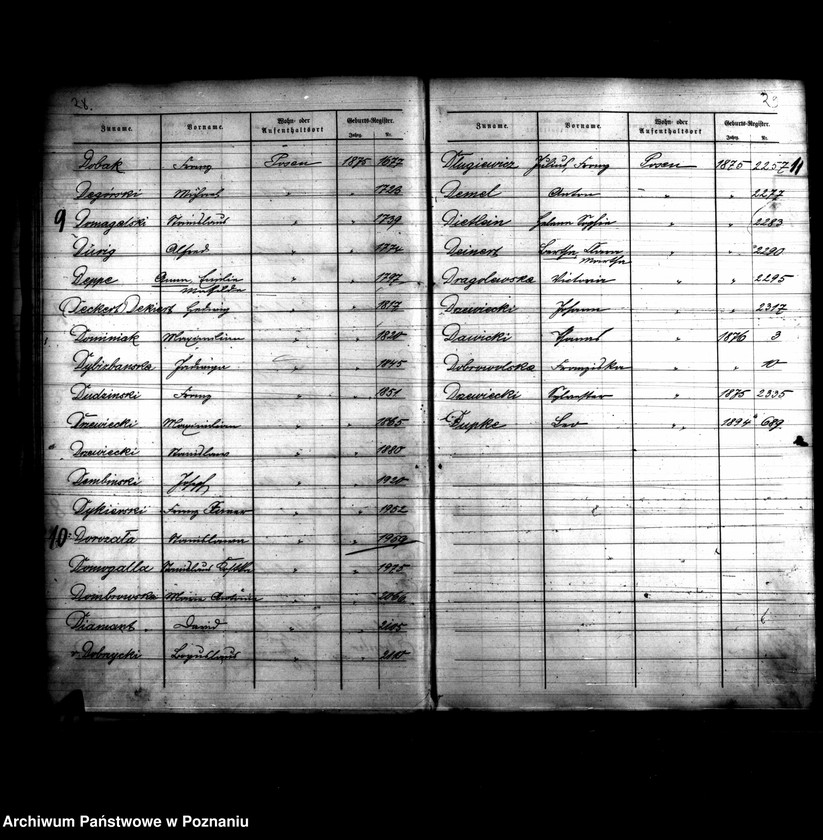 28.
Zuname. Vorname. Wohn- oder Aufenthaltsort Geburts-Register. Jahrg. Nr.
Dobak Franz Posen 1875 1677
Degórski Michael " " 1723
9 Domagalski Stanislaus " " 1739
Dürig Alfred " " 1774
Deppe Anna Emilie Mathilde " " 1797
(Deckert) Dekiert Hedwig " " 1817
Dominiak Maximilian " " 1820
Dybizbanska Jadwiga " " 1845
Dudzinski Franz " " 1851
Drzewiecki Maximilian " " 1865
Drzewiecki Stanislaus " " 1880
Dembinski Joseph " " 1920
Dykierski Franz " " 1952
10 Dorozała Stanislaus " " 1959
Domogalla Stanislaus Kostka " " 1975
Dombrowska Maria " " 2066
Diamant David " " 2105
v. Dobrzycki Boguslaus " " 2110
29
Zuname. Vorname. Wohn- oder Aufenthaltsort Geburts-Register. Jahrg. Nr.
Dlugiewicz Julius Franz Posen 1875 2257 11
Demel Anton " " 2277
Dietlein Helene Sophie " " 2283
Deinert Bertha Klara Martha " " 2290
Dragolewska Victoria " " 2295
Drzewiecki Johann " " 2317
Dawicki " 1876 3
Dobrowolska Franziska " " 10
Drzewiecki Sylvester " 1875 2335
Dupke Leo " 1894 689
Archiwum Państwowe w Poznaniu